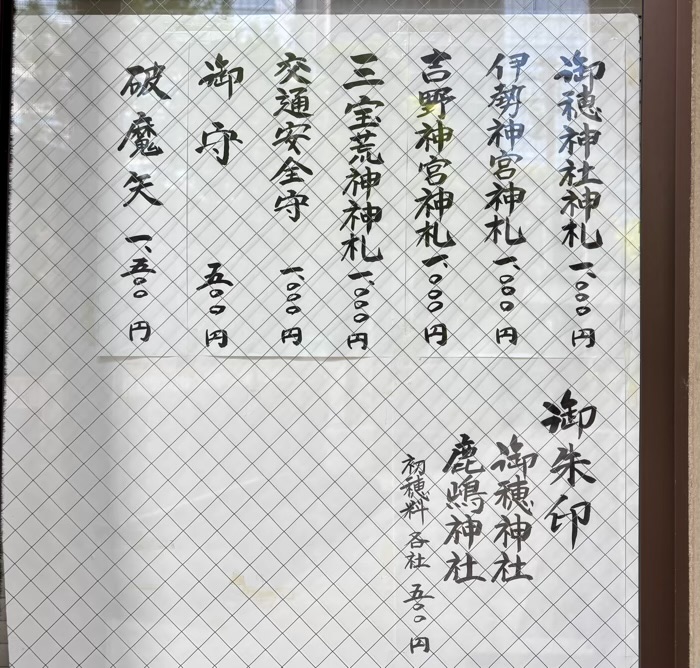 御穂神社神札 一、〇〇〇円
伊勢神宮神札 一、〇〇〇円
吉野神宮神札 一、〇〇〇円
三宝荒神神札 一、〇〇〇円
交通安全守 一、〇〇〇円
御守 五〇〇円
破魔矢 一、五〇〇円
御朱印
御穂神社
鹿嶋神社
初穂料 各社 五〇〇円